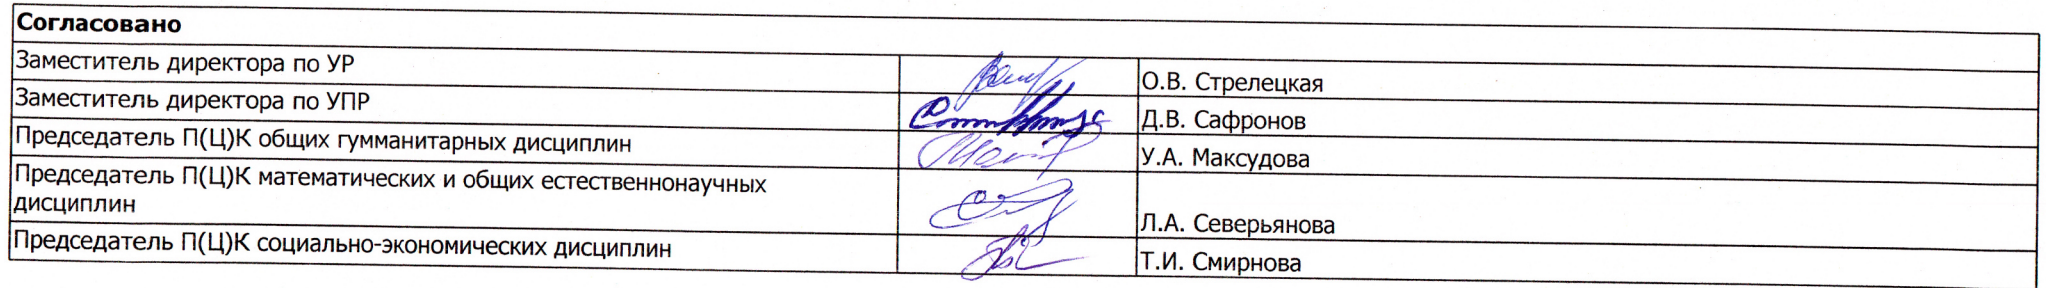 Согласовано
Заместитель директора по УР О.В. Стрелецкая
Заместитель директора по УПР Д.В. Сафронов
Председатель П(Ц)К общих гумманитарных дисциплин У.А. Максудова
Председатель П(Ц)К математических и общих естественнонаучных
дисциплин Л.А. Северьянова
Председатель П(Ц)К социально-экономических дисциплин Т.И. Смирнова